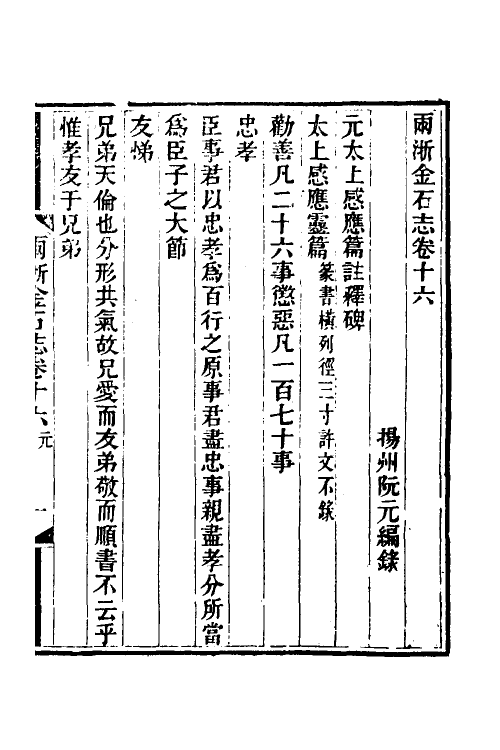 兩浙金石志卷十六
揚州阮元編錄
元太上感應篇註釋碑
太上感應靈篇篆書橫列徑三寸許文不錄
勸善凡二十六事懲惡凡一百七十事
忠孝
臣事君以忠孝爲百行之原事君盡忠事親盡孝分所當
爲臣子之大節
友悌
兄弟天倫也分形共氣故兄愛而友弟敬而順書不云乎
惟孝友于兄弟
兩浙金石志卷十六 元 一